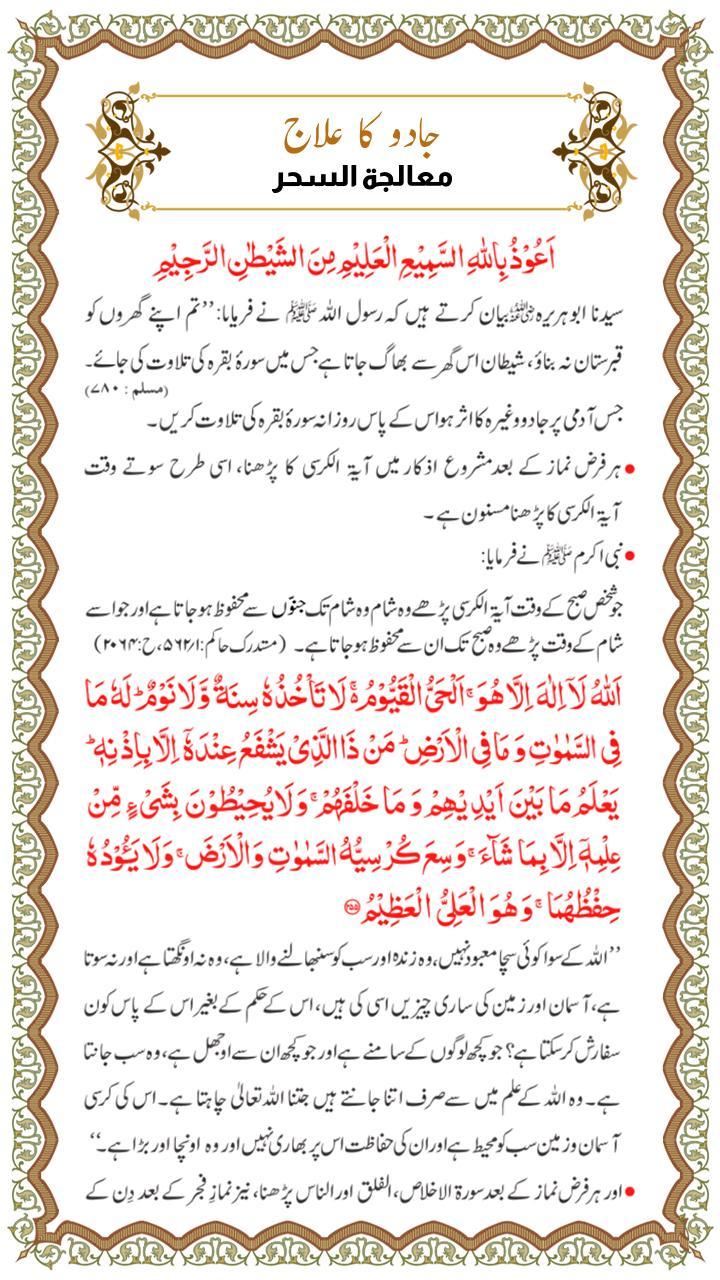 جادو کا علاج
معالجة السحر
اَعُوْذُ بِاللّٰهِ السَّمِيْعِ الْعَلِيْمِ مِنَ الشَّيْطٰنِ الرَّجِيْمِ
سیدنا ابوہریرہ رضی اللہ عنہ بیان کرتے ہیں کہ رسول اللہ ﷺ نے فرمایا: ’’تم اپنے گھروں کو
قبرستان نہ بناؤ، شیطان اس گھر سے بھاگ جاتا ہے جس میں سورۂ بقرہ کی تلاوت کی جائے۔
(مسلم: ۷۸۰)
جس آدمی پر جادو وغیرہ کا اثر ہو اس کے پاس روزانہ سورۂ بقرہ کی تلاوت کریں۔
• ہر فرض نماز کے بعد مشروع اذکار میں آیۃ الکرسی کا پڑھنا، اسی طرح سوتے وقت
آیۃ الکرسی کا پڑھنا مسنون ہے۔
• نبی اکرم ﷺ نے فرمایا:
جو شخص صبح کے وقت آیۃ الکرسی پڑھے وہ شام وہ شام تک جنّوں سے محفوظ ہو جاتا ہے اور جو اسے
شام کے وقت پڑھے وہ صبح تک ان سے محفوظ ہو جاتا ہے۔ (متدرک حاکم:۵۶۲/۱،ح:۲۰۶۴)
اَللّٰهُ لَاۤ اِلٰهَ اِلَّا هُوَ ۚ اَلْحَیُّ الْقَیُّوْمُ ۚ۬ لَا تَاْخُذُهٗ سِنَةٌ وَّ لَا نَوْمٌ ؕ لَهٗ مَا
فِی السَّمٰوٰتِ وَ مَا فِی الْاَرْضِ ؕ مَنْ ذَا الَّذِیْ یَشْفَعُ عِنْدَهٗۤ اِلَّا بِاِذْنِهٖ ؕ
یَعْلَمُ مَا بَیْنَ اَیْدِیْهِمْ وَ مَا خَلْفَهُمْ ۚ وَ لَا یُحِیْطُوْنَ بِشَیْءٍ مِّنْ
عِلْمِهٖۤ اِلَّا بِمَا شَآءَ ۚ وَسِعَ كُرْسِیُّهُ السَّمٰوٰتِ وَ الْاَرْضَ ۚ وَ لَا یَـُٔوْدُهٗ
حِفْظُهُمَا ۚ وَ هُوَ الْعَلِیُّ الْعَظِیْمُ ﴿۲۵۵﴾
’’اللہ کے سوا کوئی سچا معبود نہیں، وہ زندہ اور سب کو سنبھالنے والا ہے، وہ نہ اونگھتا ہے اور نہ سوتا
ہے، آسمان اور زمین کی ساری چیزیں اسی کی ہیں، اس کے حکم کے بغیر اس کے پاس کون
سفارش کر سکتا ہے؟ جو کچھ لوگوں کے سامنے ہے اور جو کچھ ان سے اوجھل ہے، وہ سب جانتا
ہے۔ وہ اللہ کے علم میں سے صرف اتنا جانتے ہیں جتنا اللہ تعالیٰ چاہتا ہے۔ اس کی کرسی
آسمان و زمین سب کو محیط ہے اور ان کی حفاظت اس پر بھاری نہیں اور وہ اونچا اور بڑا ہے۔‘‘
• اور ہر فرض نماز کے بعد سورۃ الاخلاص، الفلق اور الناس پڑھنا، نیز نمازِ فجر کے بعد دِن کے